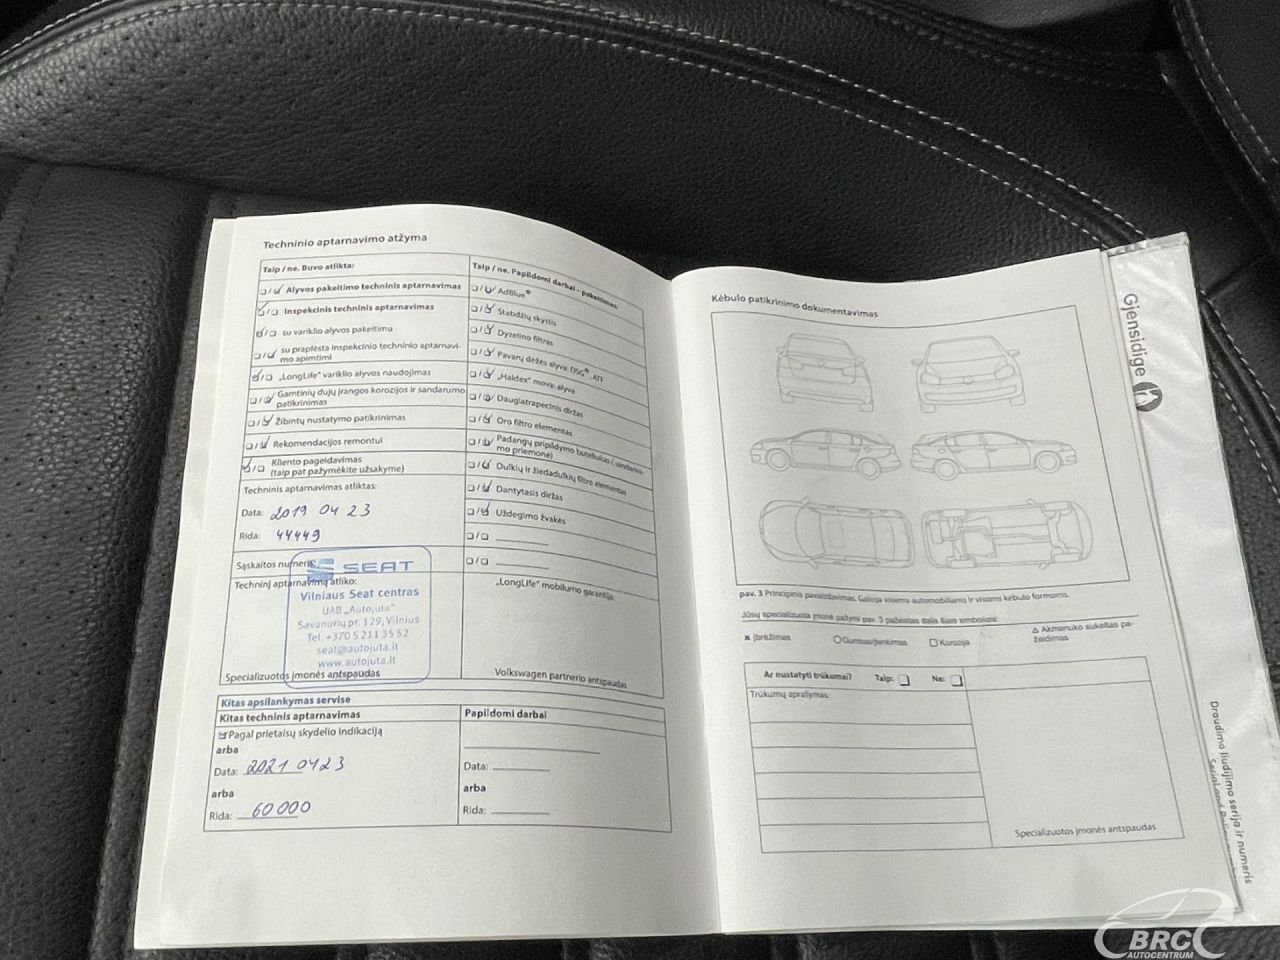 Techninio aptarnavimo atžyma
Taip / ne. Buvo atlikta:
Alyvos pakeitimo techninis aptarnavimas
Inspekcinis techninis aptarnavimas
su variklio alyvos pakeitimu
su praplėsta inspekcinio techninio aptarnavi-
mo apimtimi
„LongLife" variklio alyvos naudojimas
Gamtinių dujų įrangos korozijos ir sandarumo
patikrinimas
Žibintų nustatymo patikrinimas
Rekomendacijos remontui
Kliento pageidavimas
(taip pat pažymėkite užsakyme)
Techninis aptarnavimas atliktas:
Data: 2019 04 23
Rida: 44449
Sąskaitos numeris:
Techninį aptarnavimą atliko:
SEAT
Vilniaus Seat centras
UAB „Autojuta"
Savanorių pr. 129, Vilnius
Tel. +370 5 211 35 52
seat@autojuta.lt
www.autojuta.lt
Specializuotos įmonės antspaudas
Taip / ne. Papildomi darbai - pakeitimas:
AdBlue®
Stabdžių skystis
Dyzelino filtras
Pavarų dėžės alyva: DSG®, ATF
„Haldex" mova: alyva
Daugiatrapecinis diržas
Oro filtro elementas
Padangų pripildymo buteliukas ( sandarini-
mo priemonė)
Dulkių ir žiedadulkių filtro elementas
Dantytasis diržas
Uždegimo žvakės
„LongLife" mobilumo garantija:
Volkswagen partnerio antspaudas
Kitas apsilankymas servise
Kitas techninis aptarnavimas
Pagal prietaisų skydelio indikaciją
arba
Data: 2021 04 23
arba
Rida: 60 000
Papildomi darbai
Data:
arba
Rida:
Kėbulo patikrinimo dokumentavimas
pav. 3 Principinis pavaizdavimas. Galioja visiems automobiliams ir visoms kėbulo formoms.
Jūsų specializuota įmonė pažymi pav. 3 pažeistas dalis šiais simboliais:
x Įbrėžimas
Gumbas/Įlenkimas
Korozija
Akmenuko sukeltas pa-
žeidimas
Ar nustatyti trūkumai?
Taip:
Ne:
Trūkumų aprašymas:
Specializuotos įmonės antspaudas
Gjensidige
Draudimo liudijimo serija ir numeris
BRC
AUTOCENTRUM